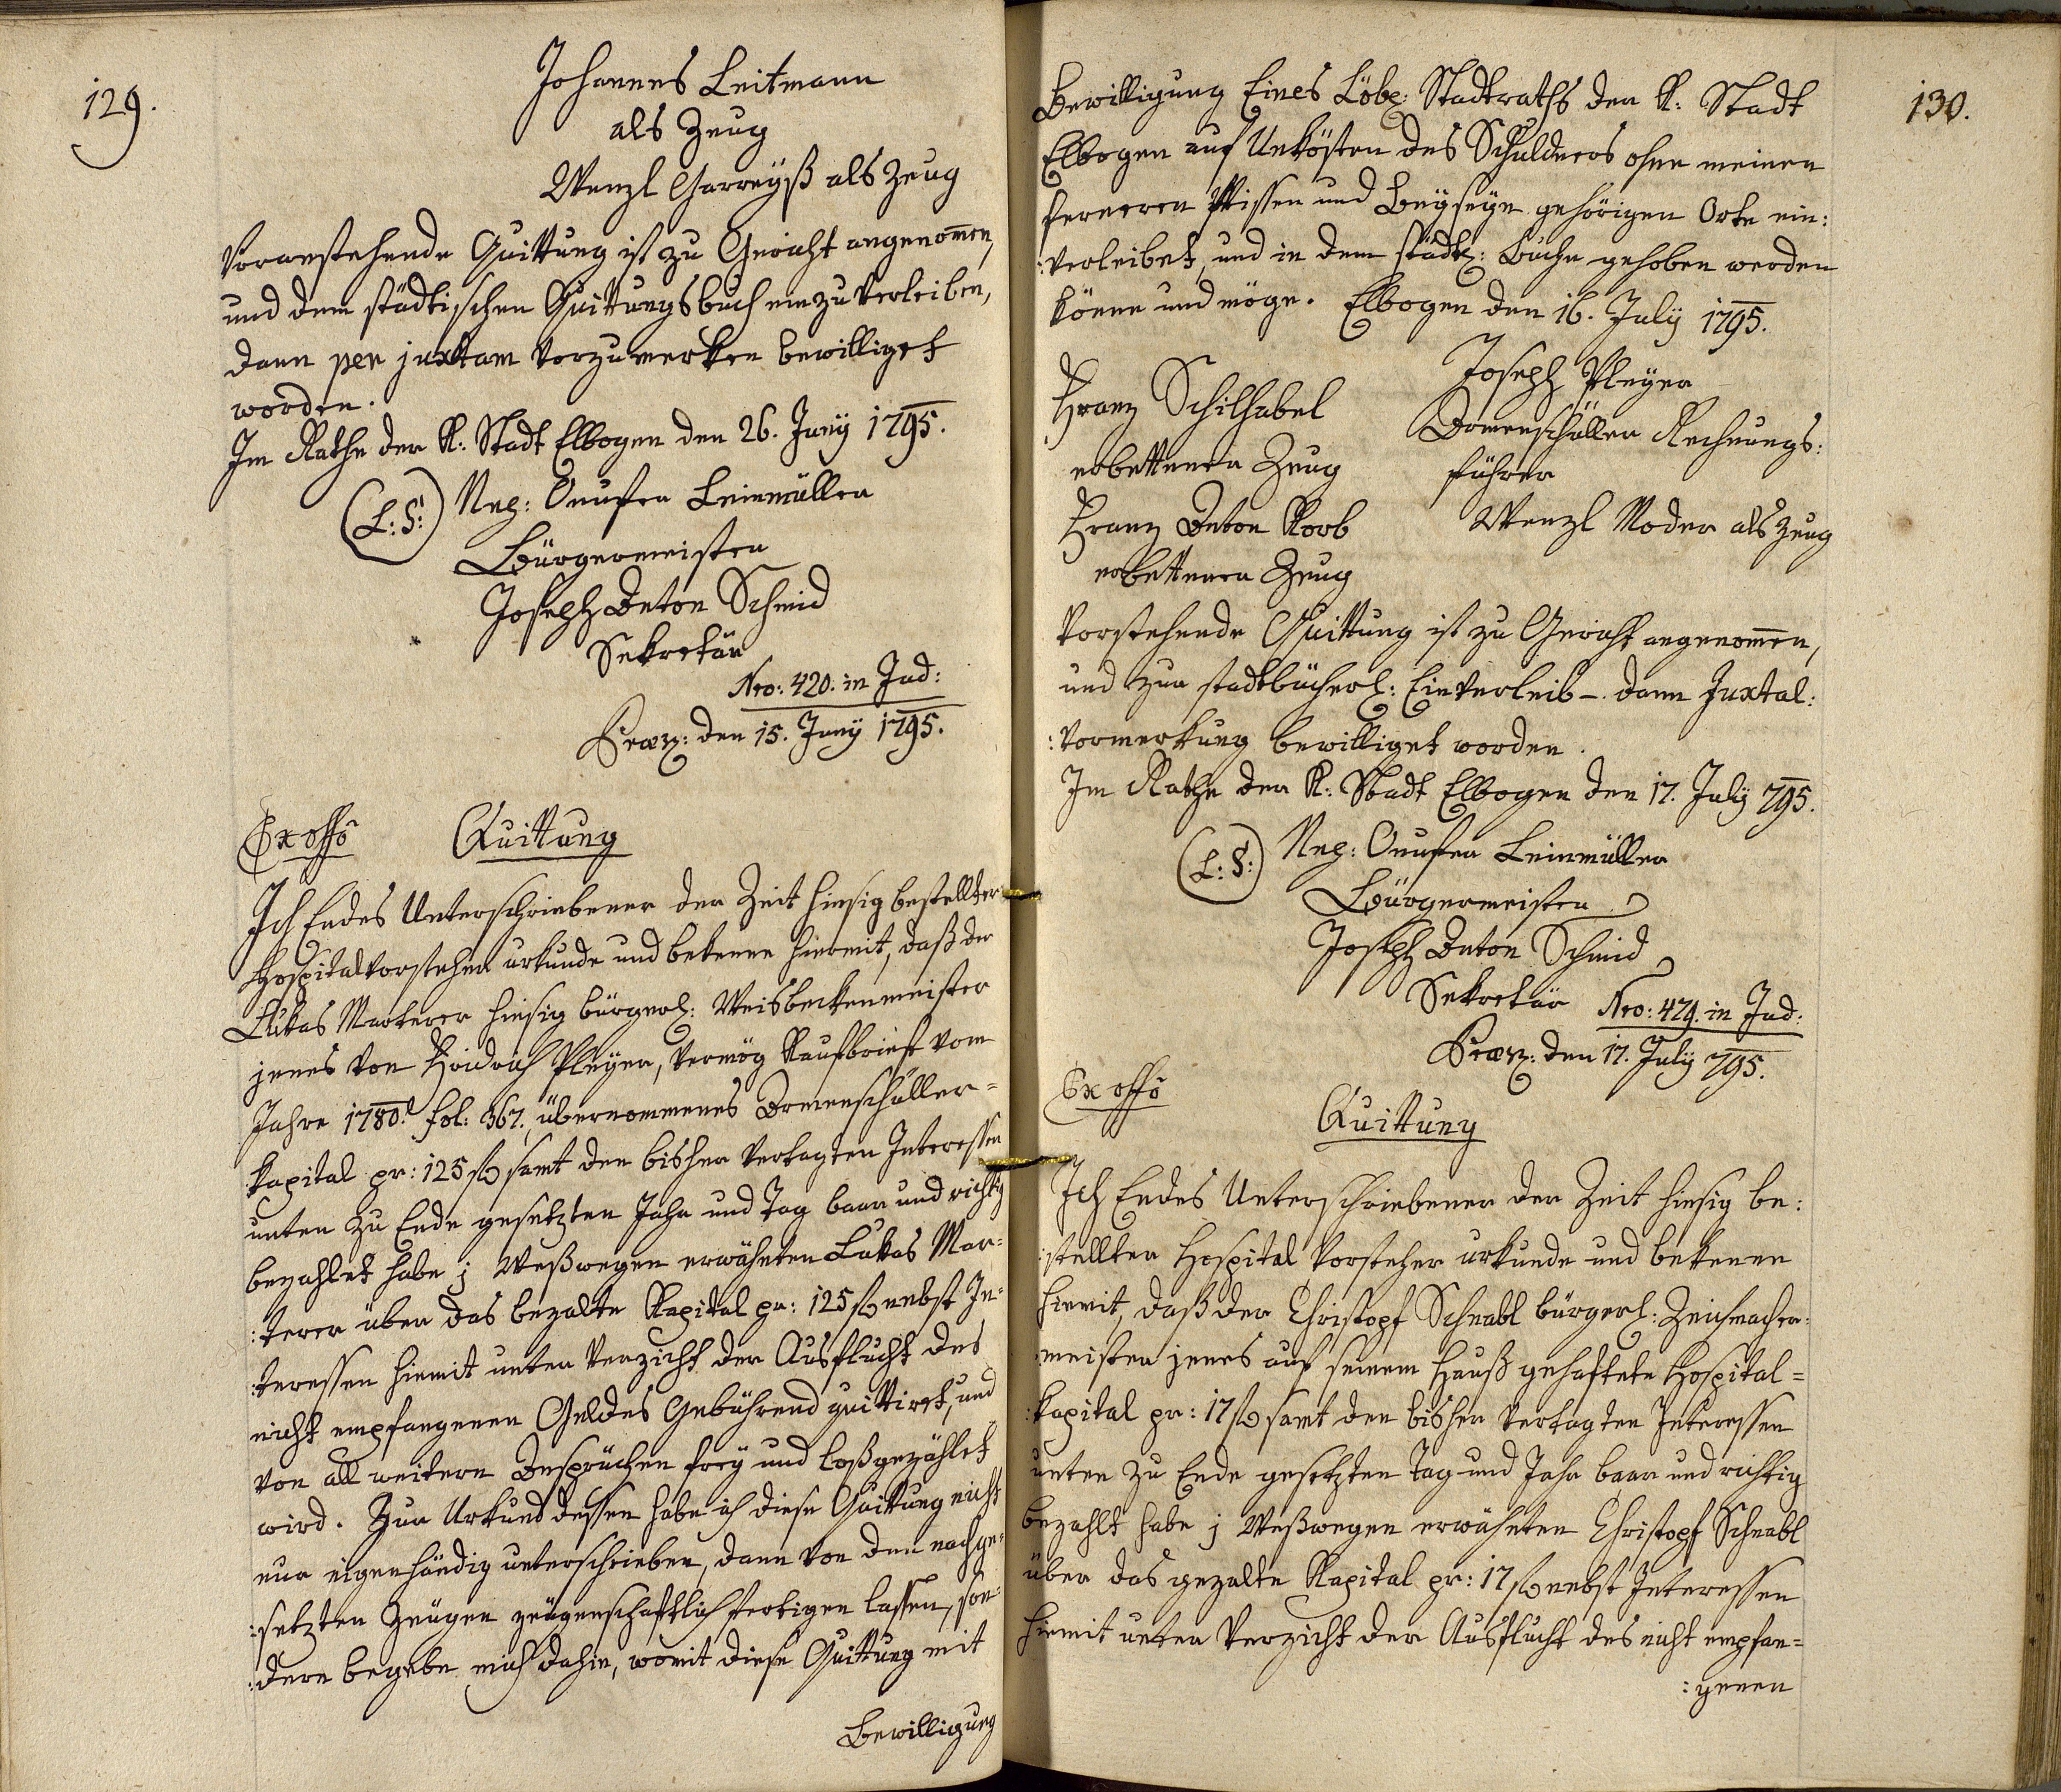 129.
Johannes Leitmann
als Zeug
Wenzl Garreyß als Zeug
Voranstehende Quittung ist zu Gericht angenom̄en,
und dem städtischen Quittungsbuch einzuverleiben,
dann per juxtam vorzumerken bewilliget
worden.
Im Rathe der K: Stadt Elbogen den 26. Juny 1795.
(L:S:) Nep: Onufer Leinmüller
Bürgermeister
Joseph Anton Schmid
Sekretär
Nro: 420. in Jud:
Præs: den 15. Juny 1795.
Ex offô Quittung
Ich Endes Unterschriebener der Zeit hiesig bestellter
Hospitalvorsteher urkunde und bekenne hiermit, daß der
Lukas Marterer hiesig bürgerl: Weisbeckenmeister
jenes von Fridrich Pleyer, vermög Kaufbriefe vom
Jahre 1780. fol: 367. übernommenes Armenschüller=
kapital pr: 125 f samt den bisher vertagten Interessen
unten zu Ende gesetzten Jahr und Tag baar und richtig
bezahlet habe; Weßwegen erwähnten Lukas Mar=
:terer über das bezalte Kapital pr: 125 f nebst In=
:teressen hiemit unter Verzicht der Ausflucht des
nicht empfangenen Geldes Gebührend quittiret, und
von all weitern Ansprüchen frey und loßgezählet
wird. Zur Urkund dessen habe ich diese Quittung nicht
nur eigenhändig unterschrieben, dann von den nachge=
:setzten Zeugen zeugenschaftlich fertigen lassen, son=
:dern begebe mich dahin, womit diese Quittung mit
Bewilligung
130.
Bewilligung Eines Löbl: Stadtraths der K: Stadt
Elbogen auf Unkösten des Schuldners ohne meinen
ferneren Wissen und Beyseyn gehörigen Orte ein:
:verleibet, und in dem städt: Buche gehoben werden
könne und möge. Elbogen den 16. July 1795.
Joseph Pleyer
Armenschüller Rechnungs:
führer
Franz Schilhabel
erbettener Zeug
Wenzl Moder als Zeug
Franz Anton Korb
erbettener Zeug
Vorstehende Quittung ist zu Gericht angenom̄en,
und zur stadtbücherl: Einverleib- dann Juxtal:
:vormerkung bewilliget worden.
Im Rathe der K: Stadt Elbogen den 17. July 795.
(L:S:) Nep: Onufer Leinmüller
Bürgermeister
Joseph Anton Schmid
Sekretär Nro: 479. in Jud:
Præs: den 17. July 795.
Ex offô
Quittung
Ich Endes Unterschriebener der Zeit hiesig be:
:stellter Hospital Vorsteher urkunde und bekenne
hiemit, daß der Christoph Schnabl bürgerl: Zeichmacher:
:meister jenes auf seinem Hauß gehaftete Hospital=
:kapital pr: 17 f samt den bisher vertagten Interessen
unten zu Ende gesetzten Tag und Jahr baar und richtig
bezahlt habe; Weßwegen erwähnten Christoph Schnabl
über das gezalte Kapital pr: 17 f nebst Interessen
hiemit unter Verzicht der Ausflucht des nicht empfan=
:genen